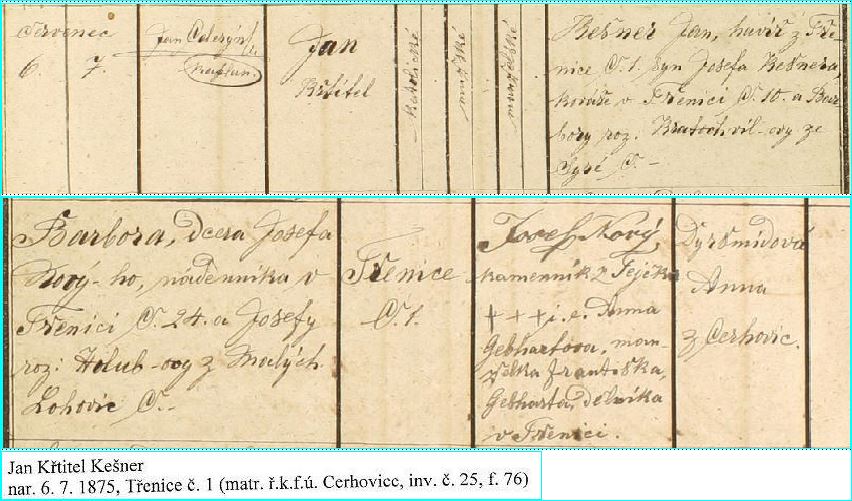 červenec
6. 7.
Jan Celerýn
kaplan.
Jan
Křtitel
katolické
mužské
manželské
Kešner Jan, havíř z Tře-
nice Č. 1. syn Josefa Kešnera,
kováře v Třenici Č. 10. a Bar-
bory roz. Kratochvil-ovy ze
Sysé Č. –
Barbora, dcera Josefa
Nový-ho, nádenníka v
Třenici Č. 24. a Josefy
roz: Holub-ovy z Malých
Lohovic Č. –
Třenice
Č. 1.
Josef Nový,
kamenník z
+ + + i. e. Anna
Gebhartova, man-
želka Františka
Gebharta, dělníka
v Třenici.
Anna
z Cerhovic.
Jan Křtitel Kešner
nar. 6. 7. 1875, Třenice č. 1 (matr. ř.k.f.ú. Cerhovice, inv. č. 25, f. 76)